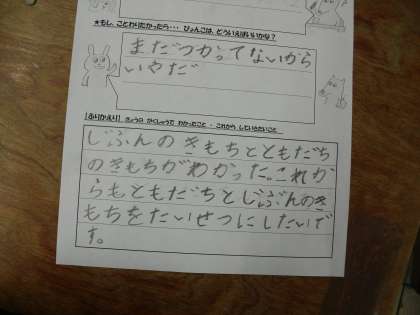 ★もし、ことわりたかったら・・・ ぴょんこは、どういえばいいかな?
まだつかってないから
いやだ
【ふりかえり】 きょうの がくしゅうで わかったこと・これから していきたいこと
じぶんのきもちとともだち
のきもちがわかった。これか
らもともだちとじぶんのき
もちをたいせつにしたいで
す。